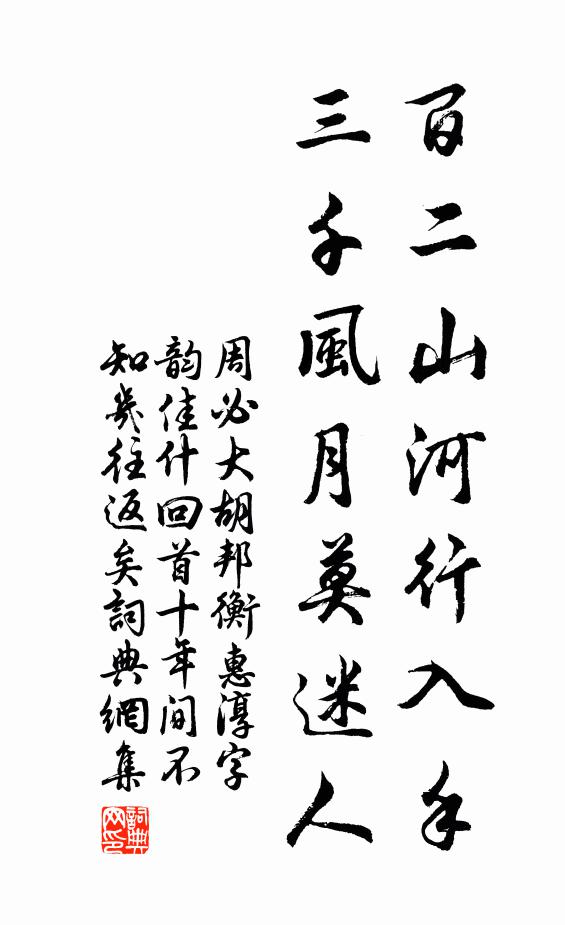 百二山河行入手
三千風月莫迷人
周必大胡邦衡惠淳字
韵佳什回首十年间不
知幾往返矣詞典網集
詞典
网印